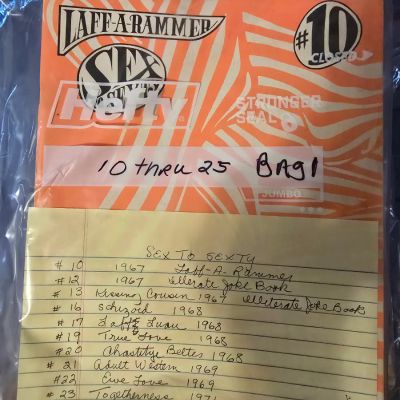 LAFF-A-RAMMER
#10
CLOSED
SEX
TO SEXTY
Hefty
STRONGER
SEAL
10 THRU 25 BAG 1
JUMBO
SEX TO SEXTY
#10 1967 Laff-A-Rammer
#12 1967 illerate Joke Book
#13 Kissing Cousin 1967 illiterate Joke Book
#16 Schizoid 1968
#17 Laff Luau 1968
#19 True Love 1968
#20 Chastitye Beltes 1968
#21 Adult Western 1969
#22 Eive Love 1969
#23 Togetherness 1971